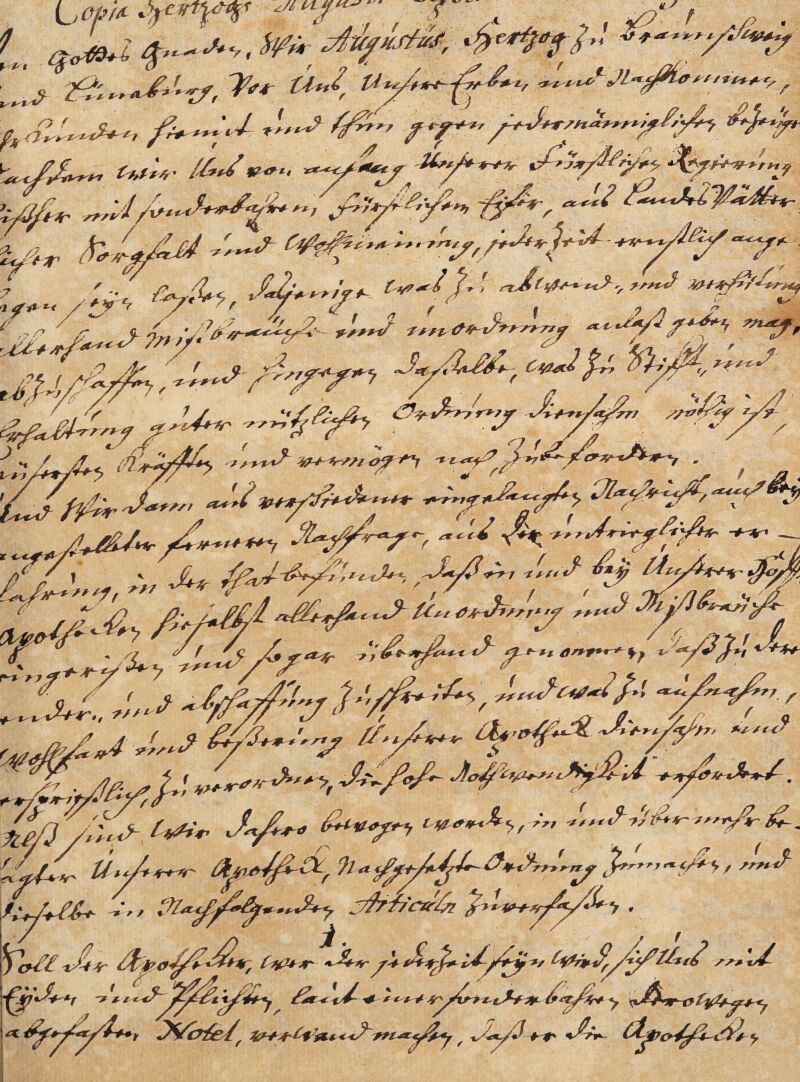 Copia Hertzogs Augusti
en Gottes Gnaden, Wir Augustus, Hertzog zu Braunschweig
und Lüneburg, Vor Uns, Unsere Erben und Nachkommen,
Urkunden hiemit und thun gegen jedermänniglichen bezeugen
Nachdem wir Uns von anfang Unserer Fürstlichen Regierung
bißher mit sonderbahrem Fürstlichem Eifer, aus Landes Vätter-
licher Sorgfalt und Wohlmeinung, jederzeit ernstlich ange-
legen seyn laßen, dasjenige was zu abwend- und verhütung
allerhand Mißbräuche und unordnung anlaß geben mag,
abzuschaffen, und hingegen daßelbe, was zu Stifft- und
Erhaltung guter nützlichen Ordnung diensahm nöthig ist,
äusersten Kräfften und vermögen nach, zubefordern.
Und Wir dann aus verschiedener eingelangten Nachricht, auch bey
angestelleter ferneren Nachfrage, aus der untrieglicher er-
fahrung, in der that befunden, daß in und bey Unserer Hoff
Apothecken hieselbst allerhand Unordnung und Mißbräuche
eingerißen und sogar überhand genommen, daß zu dere
ender- und abschaffung zuschreiten, und was zu aufnahm,
Wohlfart und beßerung Unserer Apotheck diensahm und
ersprießlich, zuverordnen, die hohe Nothwendigkeit erfordert.
sind Wir dahero bewogen worden, in und über mehr be-
sagter Unserer Apotheck, Nachgesetzte Ordnung zumachen, und
dieselbe in Nachfolgenden Articuln zuverfaßen.
1
Soll der Apothecker, wer der jederzeit seyn wird, sich Uns mit
Eyden und Pflichten, laut einer sonderbahren derowegen
abgefasten Notel, verwand machen, daß er die Apothecken